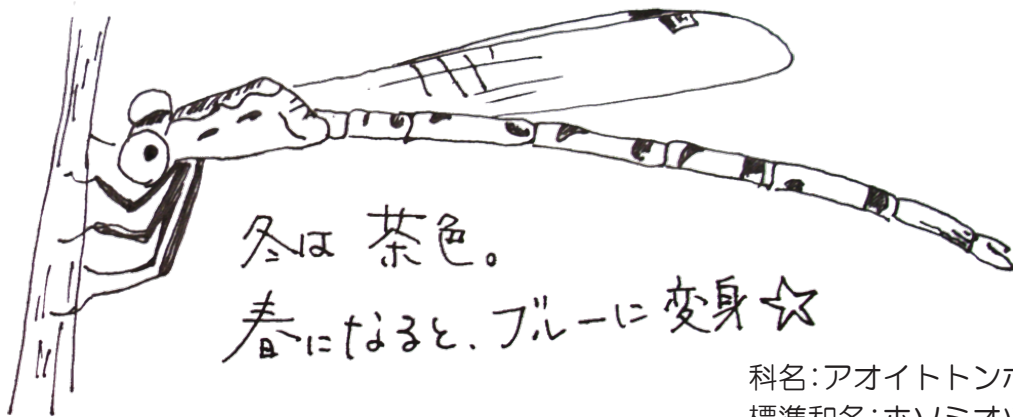 冬は茶色。
春になると、ブルーに変身☆
科名:アオイトトン
標準和名:ホソミオ